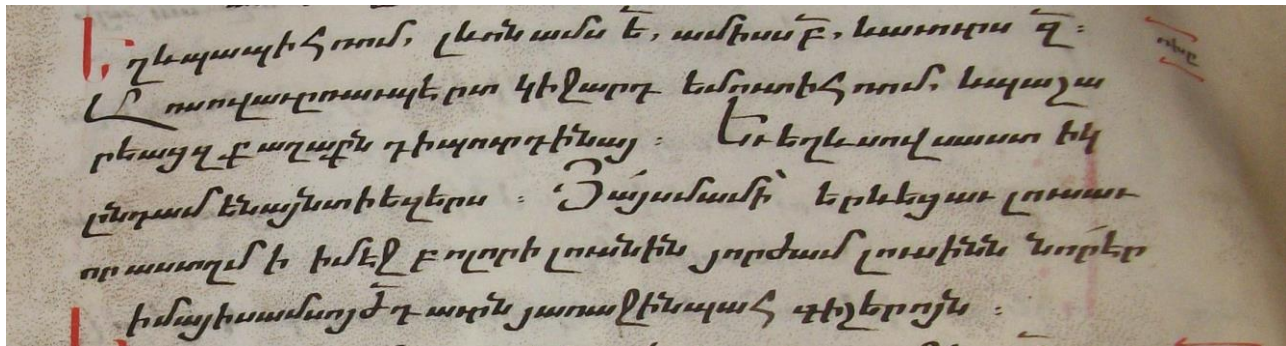 Եղև պապ ի Հռոմ, լևոն ամս է, ամիսս բ, և աւուրս զ :
ռաւպերտ կիջարդ եմուտ ի Հռոմ, և պաշա
րեաց զքաղաքն դիպուրդինայ : Եւ եղև սով սաստիկ
ընդ ամենայն տիեզերս : Յայսմ ամի՝ երևեցաւ լուսաւ
որ աստղմ ի ի մէջ բոլորի լուսնին յորժամ լուսինն նոր էր
ի մայիս ամսոյ ժդ աւրն յառաջին պահ գիշերոյն :